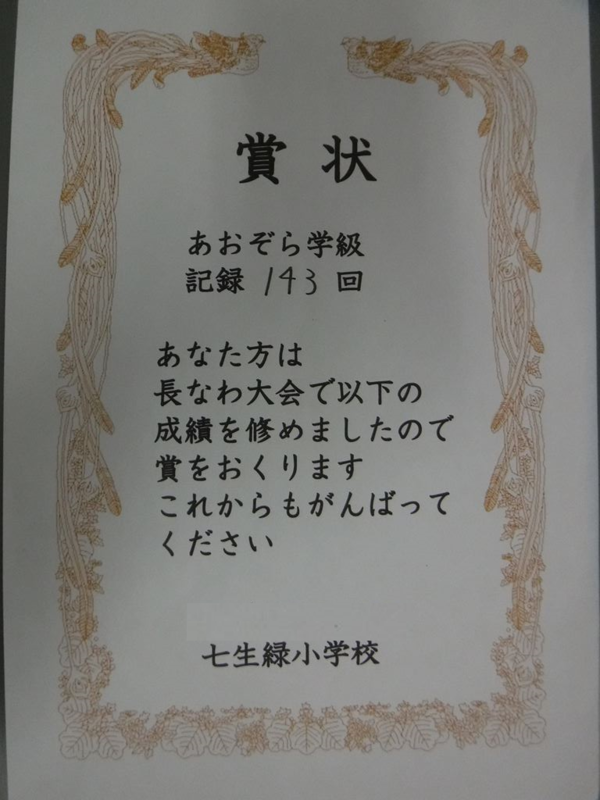 賞状
あおぞら学級
記録 143 回
あなた方は
長なわ大会で以下の
成績を修めましたので
賞をおくります
これからもがんばって
ください
七生緑小学校